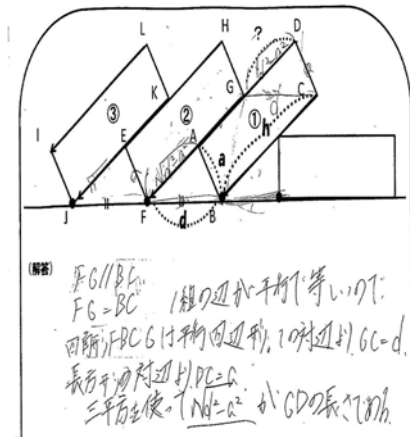 L H D
?
√d²-a²
K G C
I ③ E ② A ① h
a
√d²-a²
d
J F B
(解答)
FG//BC
FG=BC 1組の辺が平行で等しいので
四角形FBCGは平行四辺形。この対辺より GC=d
長方形の対辺より DC=a
三平方を使って √d²-a² がGDの長さである